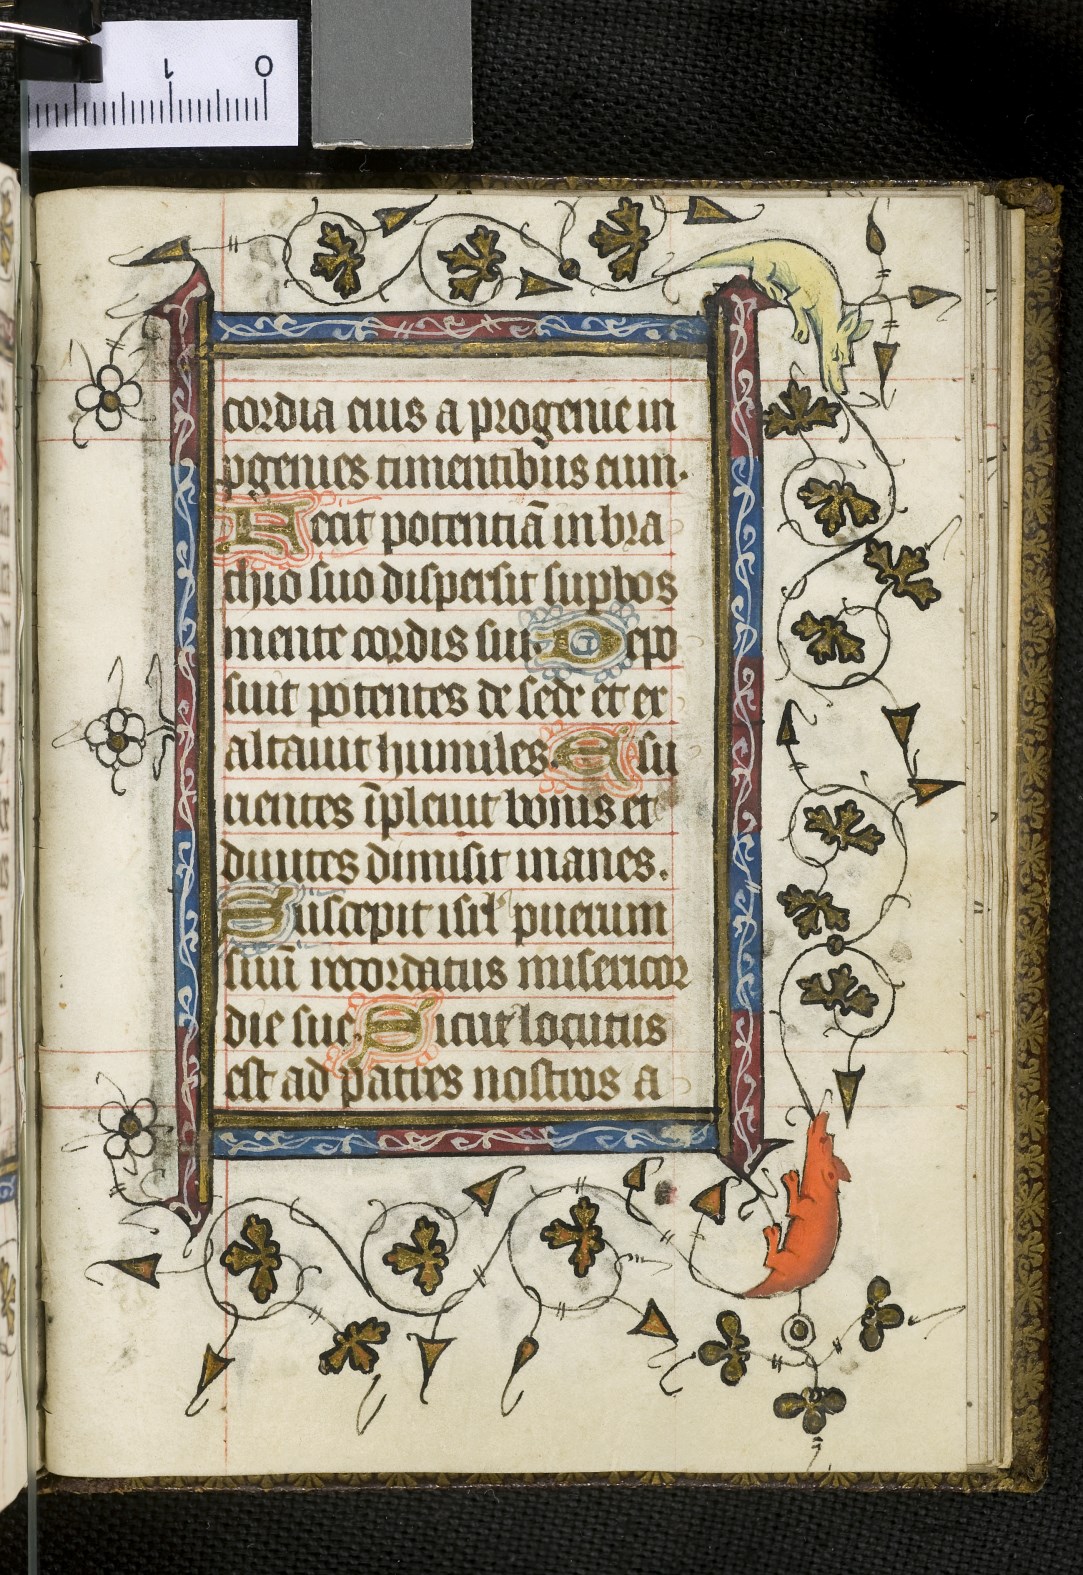 1 0
cordia eius a progenie in
ꝓgenies timentibus eum.
Fecit potentiã in bra
chio suo dispersit supbos
mente cordis sui. Depo
suit potentes de sede et ex
altauit humiles. Esu
rientes ĩpleuit bonis et
diuites dimisit inanes.
Suscepit isrl' puerum
suũ recordatus misericor
die sue. Sicut locutus
est ad patres nostros a